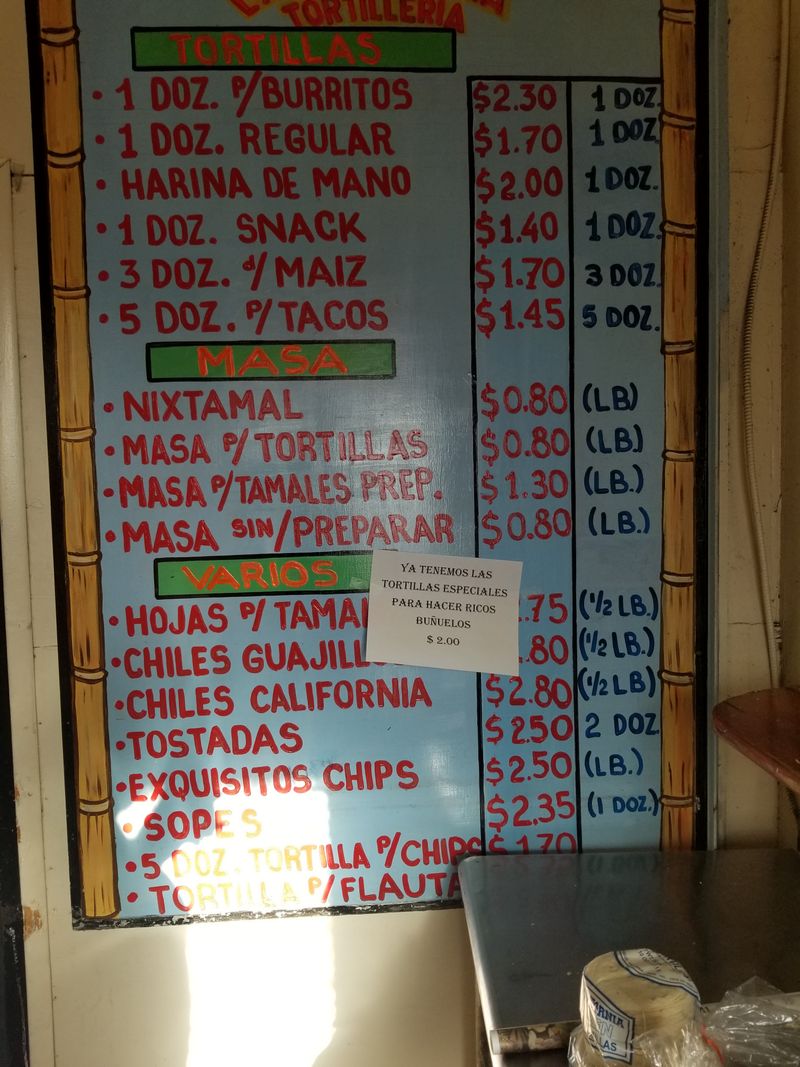 TORTILLERIA
TORTILLAS
• 1 DOZ. P/BURRITOS $2.30 1 DOZ.
• 1 DOZ. REGULAR $1.70 1 DOZ
• HARINA DE MANO $2.00 1 DOZ.
• 1 DOZ. SNACK $1.40 1 DOZ.
• 3 DOZ. d/MAIZ $1.70 3 DOZ.
• 5 DOZ. P/TACOS $1.45 5 DOZ.
MASA
• NIXTAMAL $0.80 (LB)
• MASA P/TORTILLAS $0.80 (LB.)
• MASA P/TAMALES PREP. $1.30 (LB.)
• MASA SIN/PREPARAR $0.80 (LB.)
VARIOS
YA TENEMOS LAS
TORTILLAS ESPECIALES
PARA HACER RICOS
BUÑUELOS
$ 2.00
• HOJAS P/TAMAL .75 (1/2 LB.)
• CHILES GUAJILLO .80 (1/2 LB.)
• CHILES CALIFORNIA $2.80 (1/2 LB)
• TOSTADAS $2.50 2 DOZ
• EXQUISITOS CHIPS $2.50 (LB.)
• SOPES $2.35 (1 DOZ.)
• 5 DOZ. TORTILLA P/CHIPS $1.70
• TORTILLA P/FLAUTA